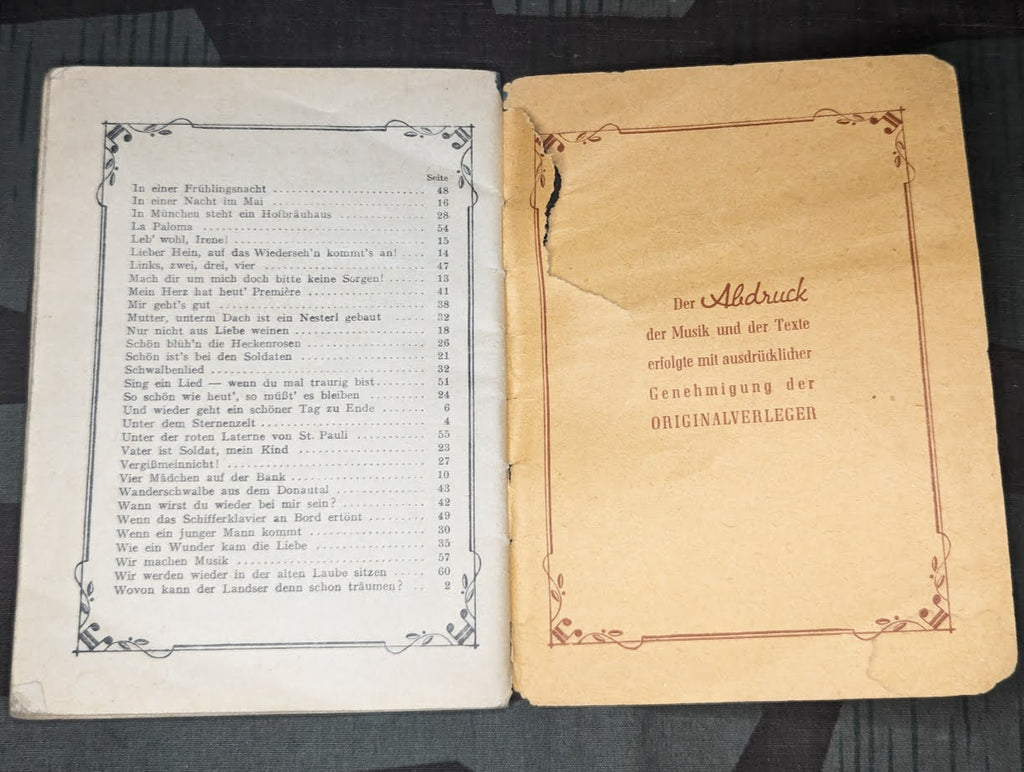 Seite
In einer Frühlingsnacht ........................ 48
In einer Nacht im Mai ........................ 16
In München steht ein Hofbräuhaus ............. 28
La Paloma .................................... 54
Leb' wohl, Irene! ............................ 15
Lieber Hein, auf das Wiederseh'n kommt's an! .... 14
Links, zwei, drei, vier ........................ 47
Mach dir um mich doch bitte keine Sorgen! ...... 13
Mein Herz hat heut' Première ................. 41
Mir geht's gut ............................... 38
Mutter, unterm Dach ist ein Nesterl gebaut ...... 32
Nur nicht aus Liebe weinen .................... 18
Schön blüh'n die Heckenrosen .................. 26
Schön ist's bei den Soldaten ................... 21
Schwalbenlied ................................ 32
Sing ein Lied — wenn du mal traurig bist ....... 51
So schön wie heut', so müßt' es bleiben ......... 24
Und wieder geht ein schöner Tag zu Ende ....... 6
Unter dem Sternenzelt ........................ 4
Unter der roten Laterne von St. Pauli .......... 55
Vater ist Soldat, mein Kind .................... 23
Vergißmeinnicht! ............................. 27
Vier Mädchen auf der Bank .................... 10
Wanderschwalbe aus dem Donautal ............. 43
Wann wirst du wieder bei mir sein? ............ 42
Wenn das Schifferklavier an Bord ertönt ........ 49
Wenn ein junger Mann kommt .................. 30
Wie ein Wunder kam die Liebe ................. 35
Wir machen Musik ............................ 57
Wir werden wieder in der alten Laube sitzen ..... 60
Wovon kann der Landser denn schon träumen? .. 2
Der Abdruck
der Musik und der Texte
erfolgte mit ausdrücklicher
Genehmigung der
ORIGINALVERLEGER